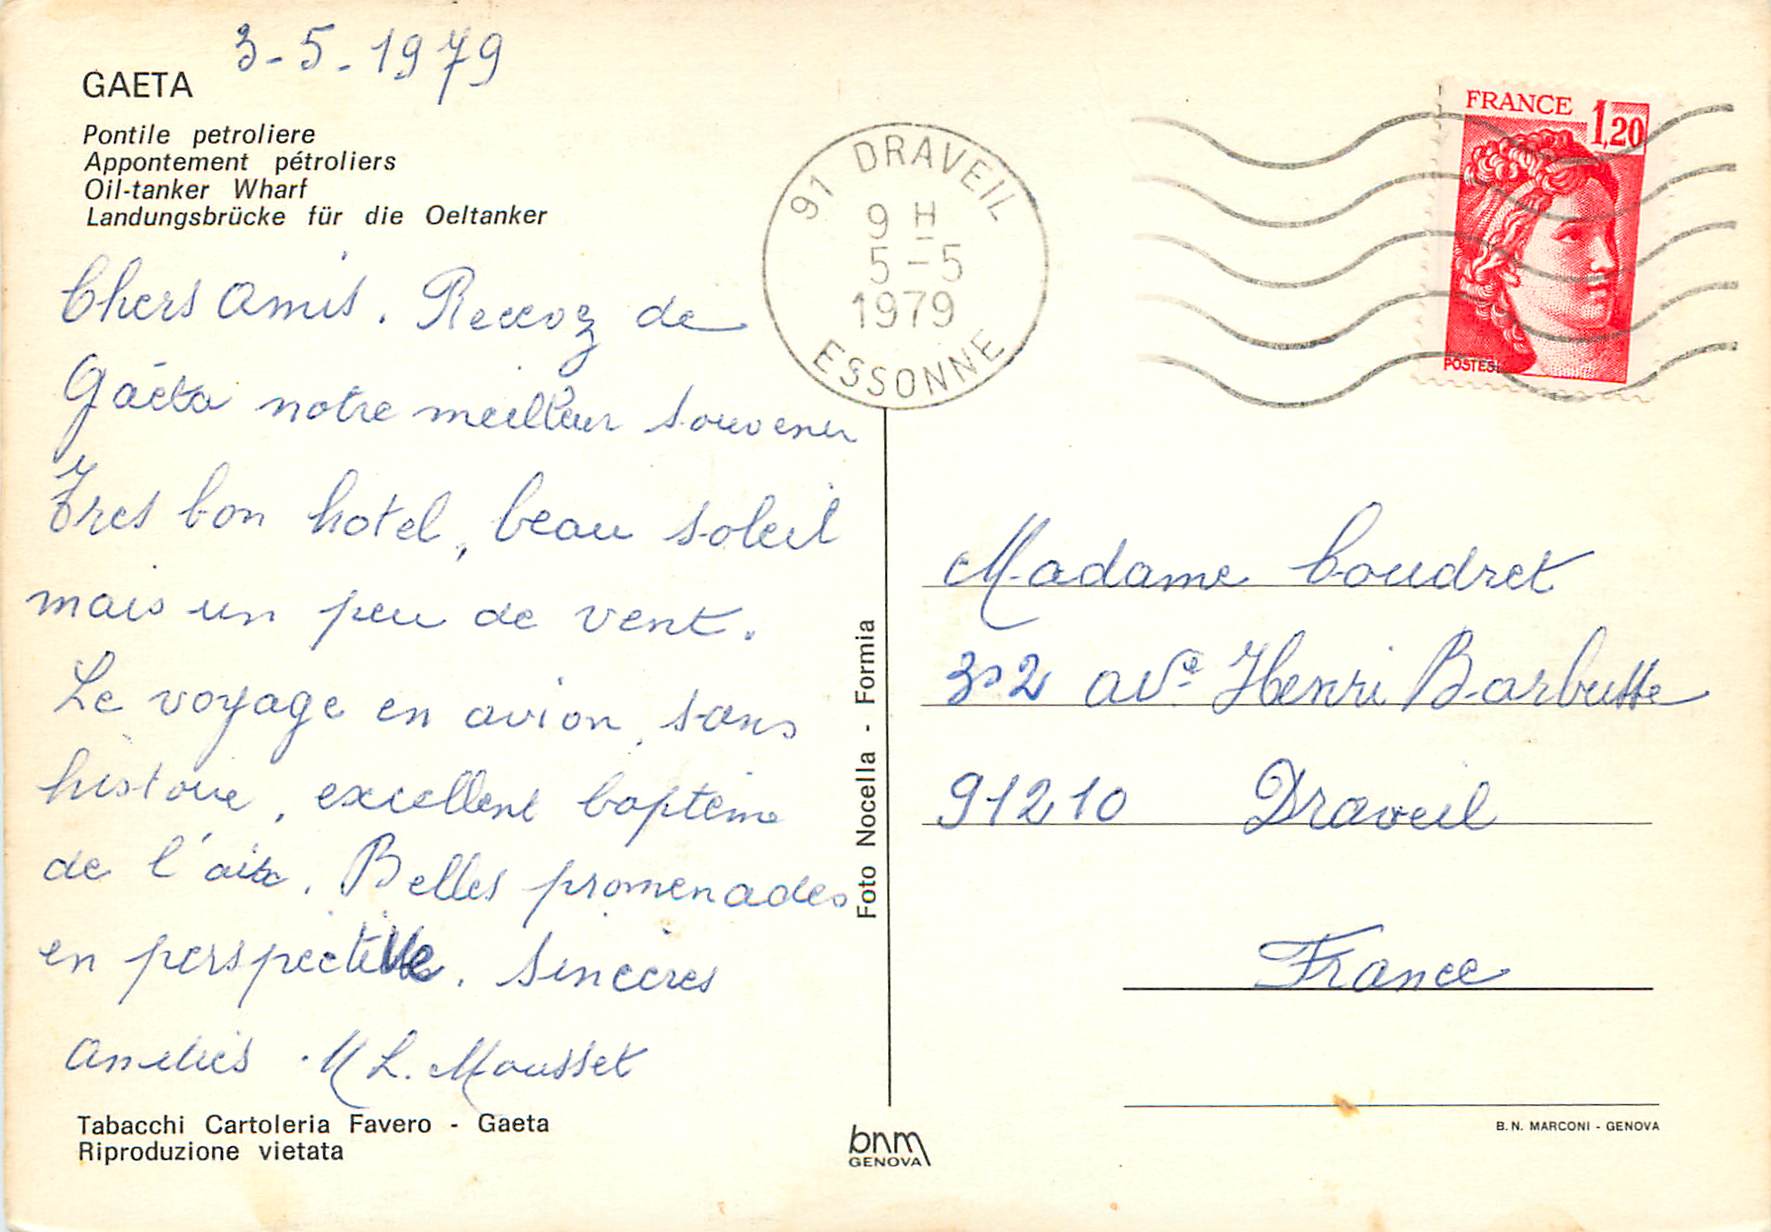 3-5-1979
GAETA
Pontile petroliere
Appontement pétroliers
Oil-tanker Wharf
Landungsbrücke für die Oeltanker
Chers Amis. Recevoz de
Gaéta notre meilleur souvenir
Tres bon hotel, beau soleil
mais un peu de vent.
Le voyage en avion, sans
histoire, excellent bapteme
de l'air. Belles promenades
en perspective. Sincères
Amitiés. M L. Mousset
Tabacchi Cartoleria Favero - Gaeta
Riproduzione vietata
Foto Nocella - Formia
bnm
GENOVA
91 DRAVEIL
9 H
5-5
1979
ESSONNE
FRANCE
1,20
POSTES
Madame Coudret
302 ave Henri Barbusse
91210 Draveil
France
B.N. MARCONI - GENOVA